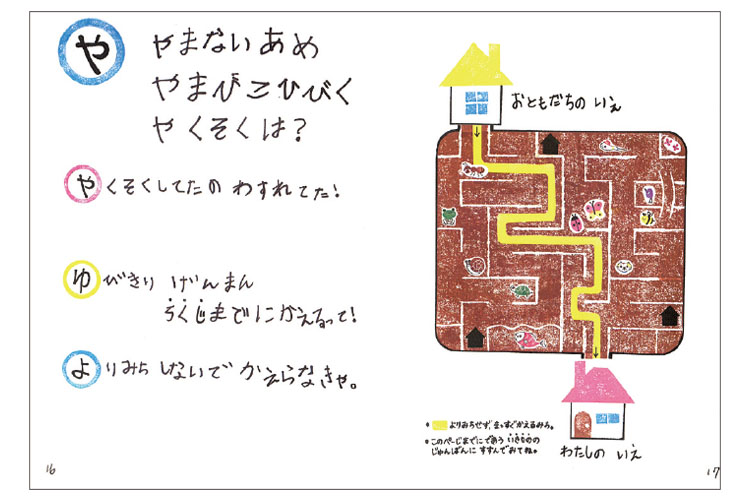 や
やまないあめ
やまびこひびく
やくそくは?
やくそくしてたの わすれてた!
ゆびきり げんまん
ろくじまでにかえるって!
よりみち しないで かえらなきゃ。
16
おともだちの いえ
よりみちせず、まっすぐかえるみち。
このぺーじまでにであう いきものの
じゅんばんに すすんでみてね。
わたしの いえ
17